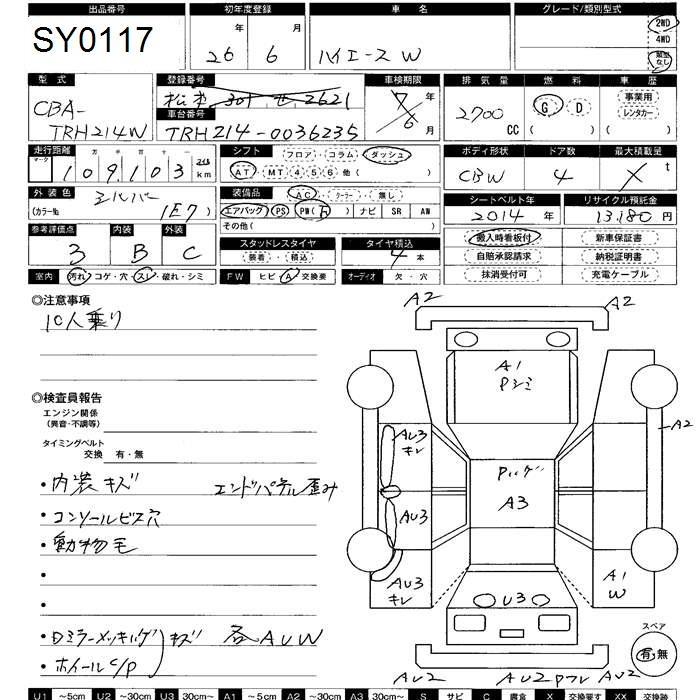 出品番号 初年度登録 車名 グレード/類別型式
SY0117 年 月 2WD
26 6 ハイエース W 4WD
類型なし
型式 登録番号 車検期限 排気量 燃料 車歴
CBA- 松本 301 せ 2621 7 年 2700 G D 事業用
車台番号 レンタカー
TRH214W TRH214-0036235 6 月 CC ( ) ( )
走行距離 シフト フロア・コラム・ダッシュ ボディ形状 ドア数 最大積載量
マーク 十 万 千 百 十 一 マイル
109103 km AT・MT 4 5 6 他 ( ) CBW 4 t
外装色 シルバー 装備品 AC・クーラー・無し シートベルト年 リサイクル預託金
(カラーNo 1E7) エアバッグ PS PW(下) ナビ SR AW 2014年 13,180円
その他( )
参考評価点 内装 外装 スタッドレスタイヤ タイヤ積込 搬入時看板付 新車保証書
3 B C 装着・積込 4 本 自賠承認請求 納税証明書
室内 汚れ・コゲ・穴・スレ・破れ・シミ FW ヒビ・A・交換要 オーディオ 欠・穴 抹消受付可 充電ケーブル
◎注意事項
10人乗り
A2 A2
A1
Pシミ
◎検査員報告
エンジン関係
(異音・不調等)
タイミングベルト
交換 有・無
A2
AU3
キレ
・内装キズ エンドパネル歪み
・コンソールビス穴
・動物毛
A3
AU3
AU3
キレ
U3
A1
W
・Dミラーメッキング キズ 各AUW
・ホイールC/P
スペア
有・無
AU2 AU2 Pフレ AU2
U1 ~5cm U2 ~30cm U3 30cm~ A1 ~5cm A2 ~30cm A3 30cm~ S サビ C 腐食 X 交換要す XX 交換跡